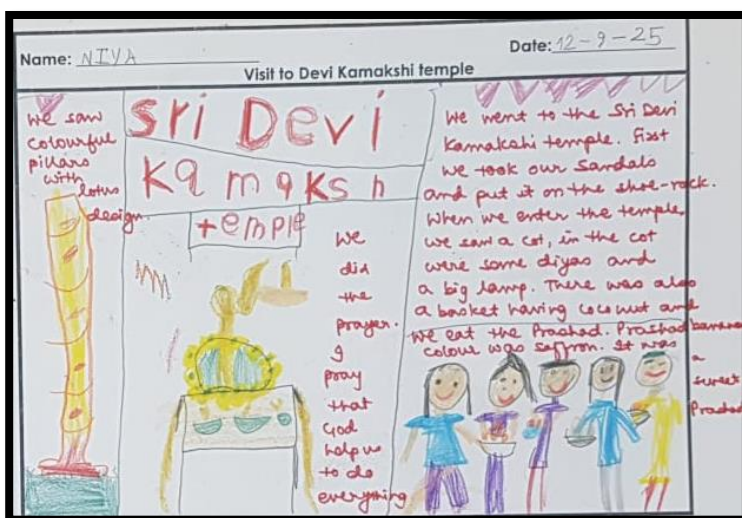 Name: NIYA
Date: 12-9-25
Visit to Devi Kamakshi temple
we saw
colourful
pillars
with
lotus
design.
Sri Devi
Kamaksh
temple
we
did
the
prayer.
I
pray
that
God
help us
to do
everything
We went to the Sri Devi
Kamakshi temple. First
we took our Sandals
and put it on the shoe-rack.
When we enter the temple,
we saw a cot, in the cot
were some diyas and
a big lamp. There was also
a basket having coconut and
banana
we eat the Prashad. Prashad
colour was saffron. It was
a
sweet
Prashad